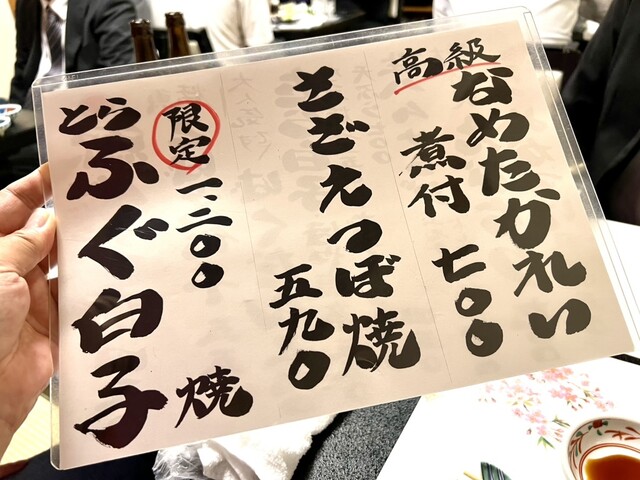 高級
なめたかれい
煮付 七〇〇
さざえつぼ焼
五九〇
限定
とらふぐ白子
一二〇〇
焼